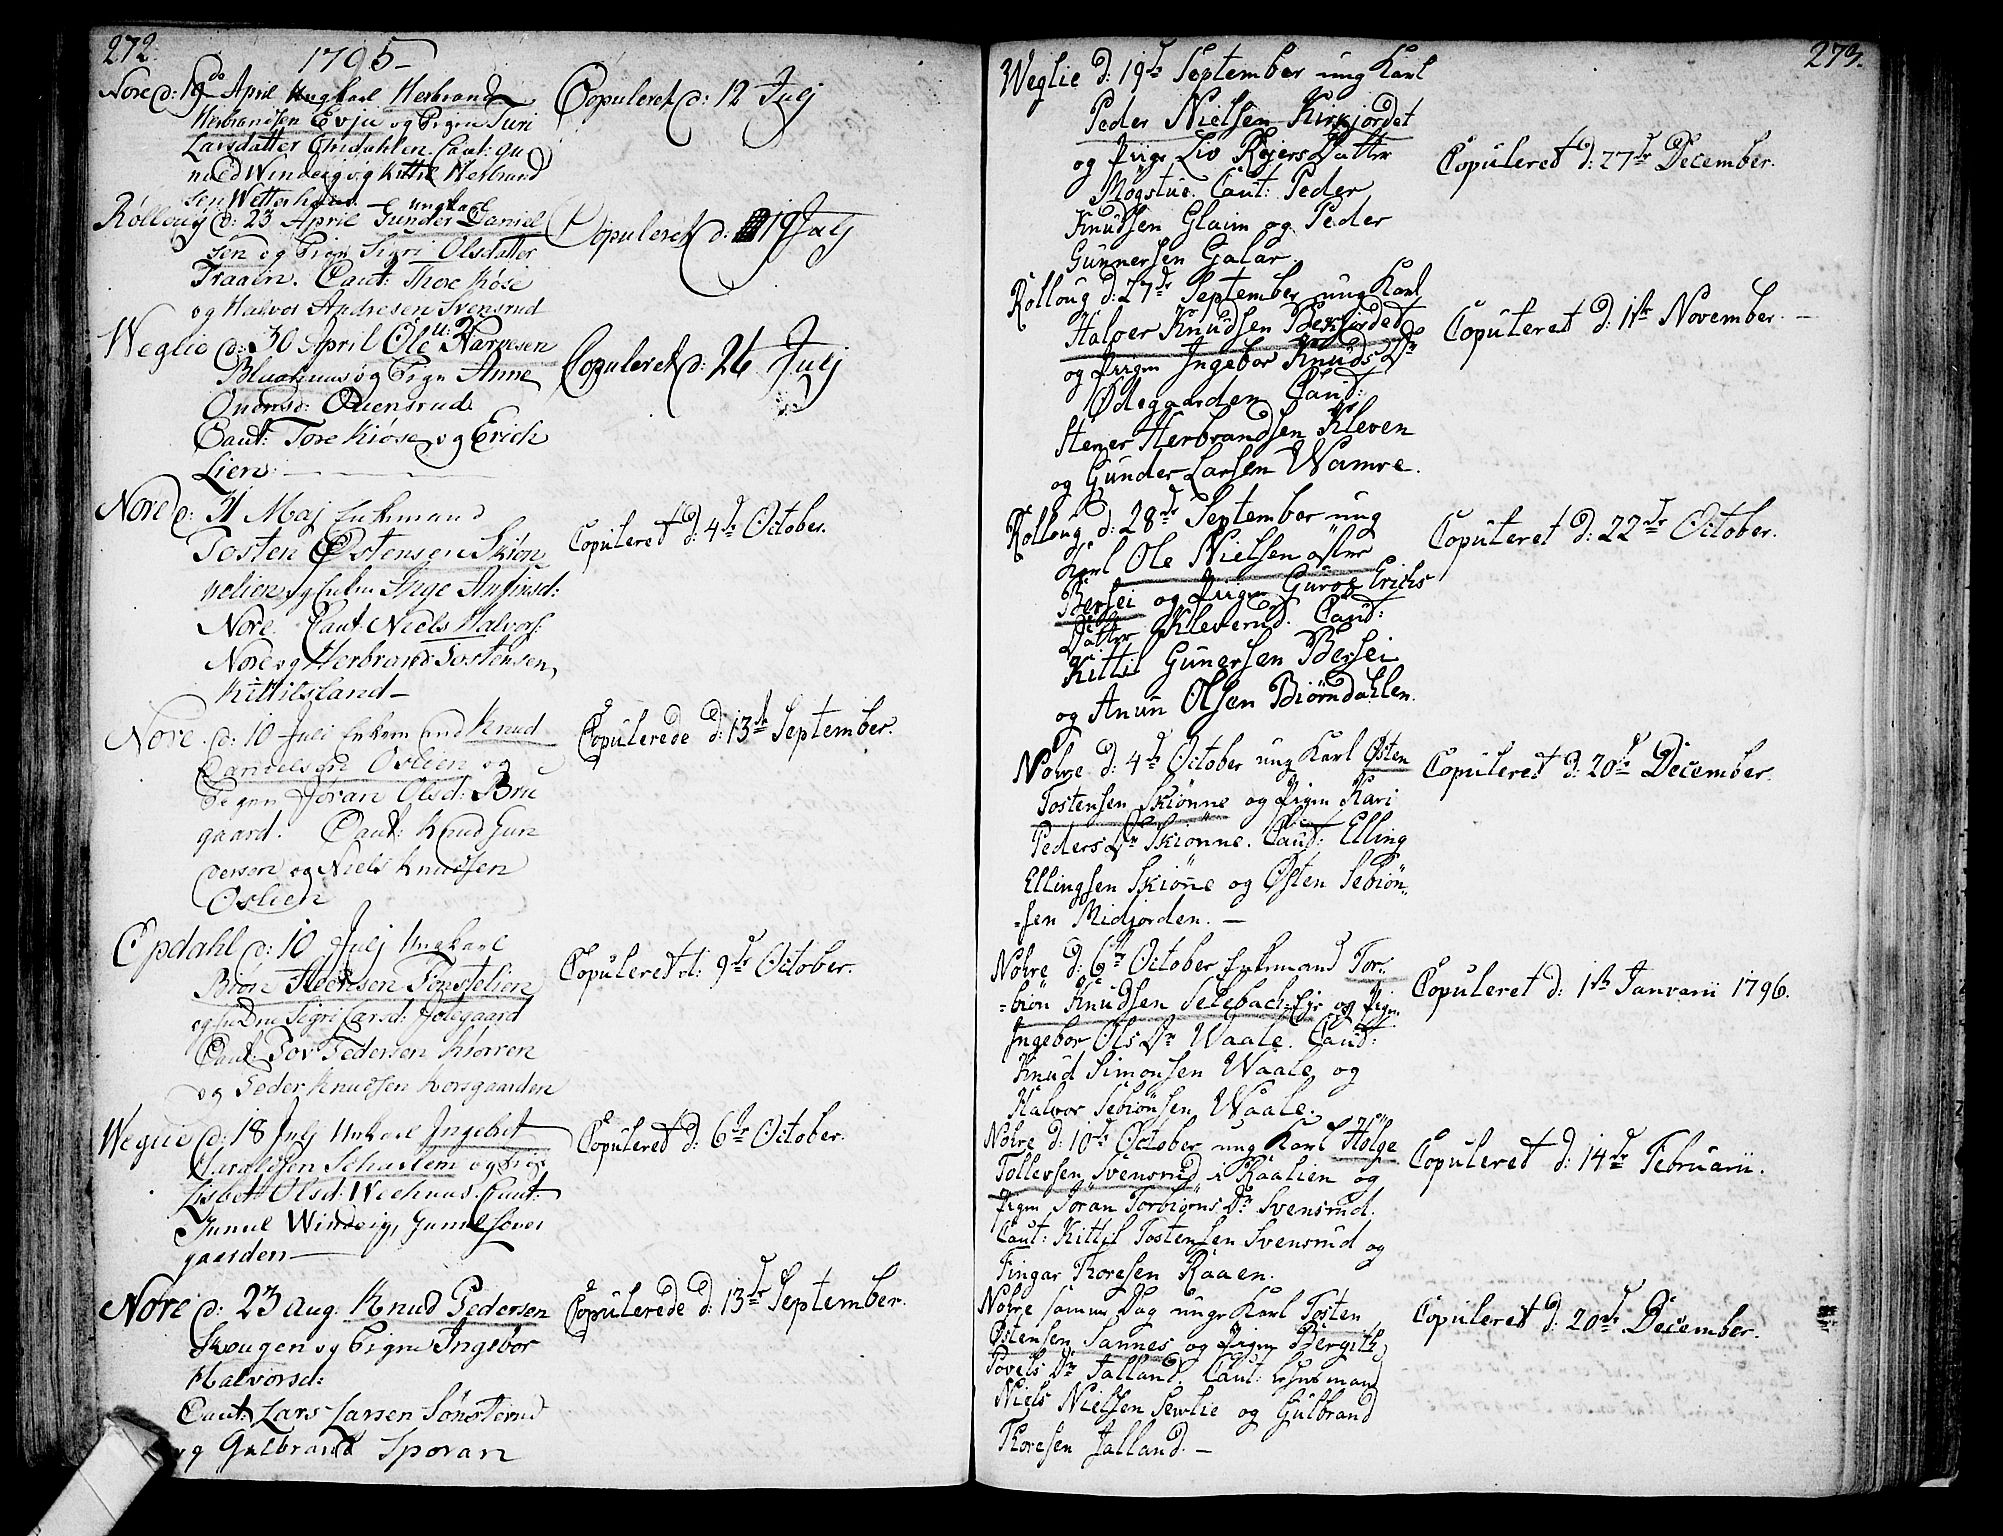 272.
1795
Nore d: 19de April Ungkarl Herbrand
Herbrandsen Evju og Pigen Turi
Larsdatter Cand: Gu
Windeig og Kittil Herbrand
sen
Copuleret d: 12 Julj
Rolloug d: 23 April ungkarl Gunder Daniel
sen og Pigen Sigri Olsdatter
Traaim. Caut: Thore Kiøse
og Halvor Andresen Svensrud
Copuleret d: 19 Julj
Weglie d: 30 April Ole Narvesen
og Pign Anne
Caut: Tore Kiøse og Erich
Lien
Copuleret d: 26 Julj
Nore d: 31 Maj Enkemand
Tosten Østensen Skiøn
nelien og Enken Inge Anfinsd:
Nore. Caut: Niels Halvors:
Nore og Herbrand Tostensen
Kittilsland
Copuleret d: 4de October.
Nore d: 10 Julj Enkemand Knud
Danielsen Oslien og
Pigen Jøran Olsd: Bru
gaard. Caut: Knud Gun
dersen og Niels Knudsen
Oslien
Copulerede d: 13de September.
Opdahl d: 10 Julj Ungkarl
Tonstelien
og Sigri Larsd: Ødegaard
Caut: Tov Pedersen
og Peder Knudsen Korsgaarden
Copuleret d: 9de October.
Weglie d: 18 Julj Unkarl Ingebet
Haraldsen og Pig:
Lisbet Olsd: Wechuus. Caut:
Gunul Windeig, Gunul
gaarden
Copuleret d: 6te October.
Nore d: 23 Aug: Knud Pedersen
Skougen og Pigen Ingebor
Halvorsd:
Caut: Lars Larsen Sønsterud
og Gulbrand Sporan
Copulerede d: 13de September.
273.
Weglie d: 19de September ung Karl
Peder Nielsen Kirkjordet
og Pige Liv RejersDatter
Mogstue. Caut: Peder
Knudsen Glaim og Peder
Gunnersen Galar.
Copuleret d: 27de December.
Rolloug d: 27de September ung Karl
Halvor Knudsen Bekjordet
og Pigen Ingebor KnudsDr
Ødegaarden Caud:
Stener Herbrandsen Kleven
og Gunder Larsen Wamre.
Copuleret d: 1ste November.
Rolloug d: 28de September ung
Karl Ole Nielsen østre
Bersei og Pigen Guroe Erichs
Datter Kleverud. Caud:
Kittil Gunersen Bersei
og Anun Olsen Biørndahlen.
Copuleret d: 22de October.
Nohre d: 4de October ung Karl Østen
Tostensen Skiønne og Pigen Kari
PedersDr Skiønne. Caud: Elling
Ellingsen Skiøne og Østen Sebiøn-
-sen Midjorden.
Copuleret d: 20de December.
Nohre d: 6te October Enkemand Tor-
-biøn Knudsen Selebach-Eje og Pigen
Ingebor OlsDr Waale. Caud:
Knud Simonsen Waale og
Halvor Sebiønsen Waale.
Copuleret d: 1ste Januarii 1796.
Nohre d: 10de October ung Karl Hølge
Tollevsen Svensrud i Raalien og
Pigen Jøran TorbiørnsDr Svensrud.
Caut: Kittil Tostensen Svensrud og
Fingar Thoresen Raaen.
Copuleret d: 14de Februarii.
Nohre samme Dag unge Karl Tosten
Østensen Sannes og Pigen Bergith
PovelsDr Jalland. Caut: Huusmand
Niels Nielsen Sevlie og Gulbrand
Thoresen Jalland.
Copuleret d: 20de December.